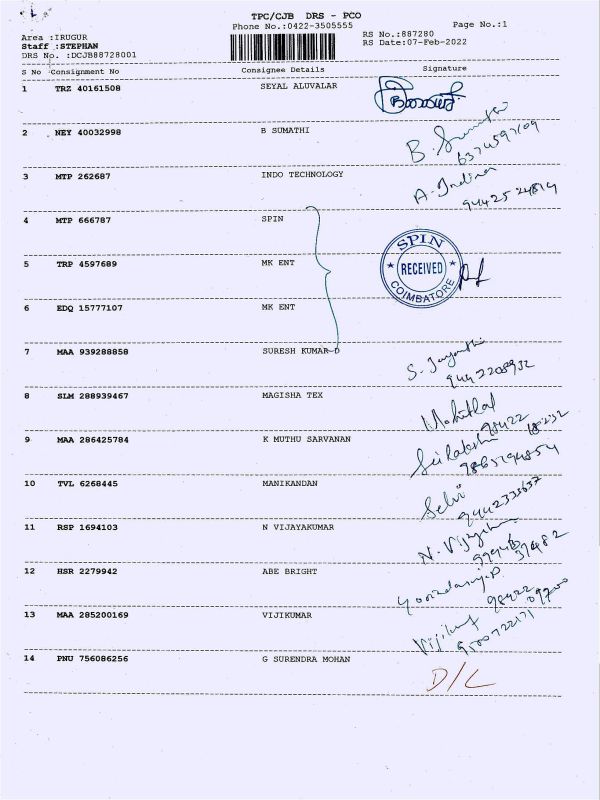 TPC/CJB DRS - PCO
Phone No.:0422-3505555 Page No.:1
Area :IRUGUR RS No.:887280
Staff :STEPHAN RS Date:07-Feb-2022
DRS No. :DCJB88728001
S No Consignment No Consignee Details Signature
1 TRZ 40161508 SEYAL ALUVALAR
2 NEY 40032998 B SUMATHI B. Sumathi
6374597109
3 MTP 262687 INDO TECHNOLOGY A. Indira
9442524814
4 MTP 666787 SPIN
5 TRP 4597689 MK ENT SPIN RECEIVED COIMBATORE
6 EDQ 15777107 MK ENT
7 MAA 939288858 SURESH KUMAR D S. Jayanthi
9442208932
8 SLM 288939467 MAGISHA TEX
98422 18232
9 MAA 286425784 K MUTHU SARVANAN
9865194854
10 TVL 6268445 MANIKANDAN Selvi
9442333637
11 RSP 1694103 N VIJAYAKUMAR
12 HSR 2279942 ABE BRIGHT
98422 09200
13 MAA 285200169 VIJIKUMAR
9500722171
14 PNU 756086256 G SURENDRA MOHAN D/L